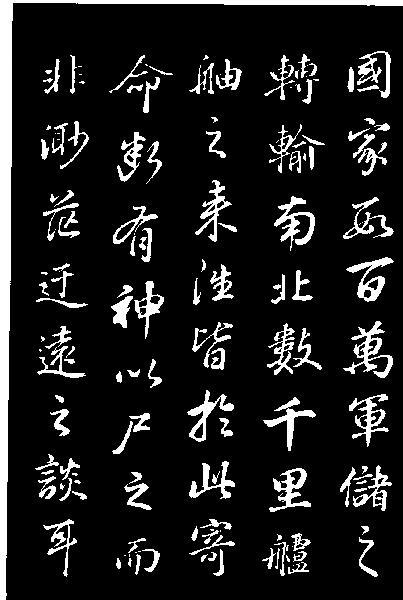 國家數百萬軍儲之
轉輸南北數千里艫
舳之来往皆於此寄
命斷有神以尸之而
非渺茫迂遠之談耳